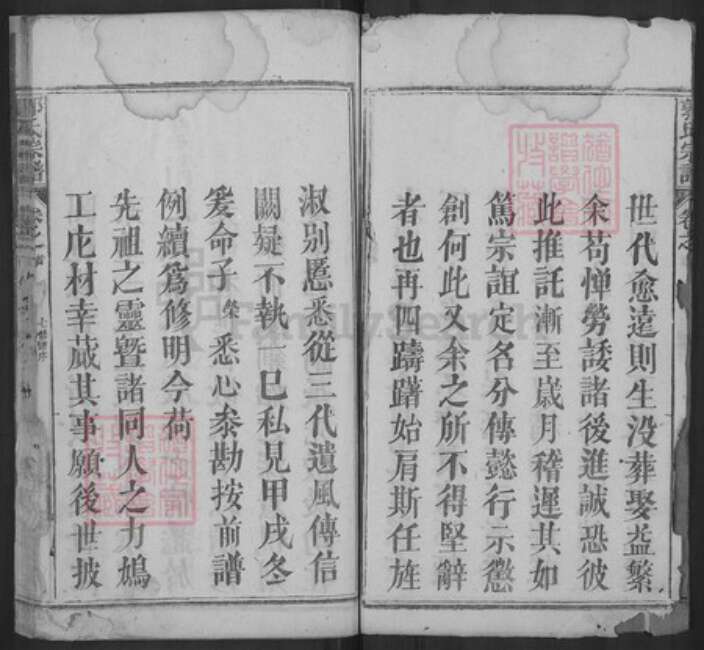 世代愈遠則生没葬娶益繁
余苟憚勞諉諸後進誠恐彼
此推託漸至歲月稽遲其如
篤宗誼定名分傳懿行示懲
創何此又余之所不得堅辭
者也再四躊躇始肩斯任旌
淑别慝悉從三代遺風傳信
闕疑不執一巳私見甲戌冬
爰命子榮悉心叅勘按前譜
例續爲修明今荷
先祖之靈曁諸同人之力鳩
工庀材幸蕆其事願後世披
郭氏宗譜
郭氏宗譜
FamilySearch